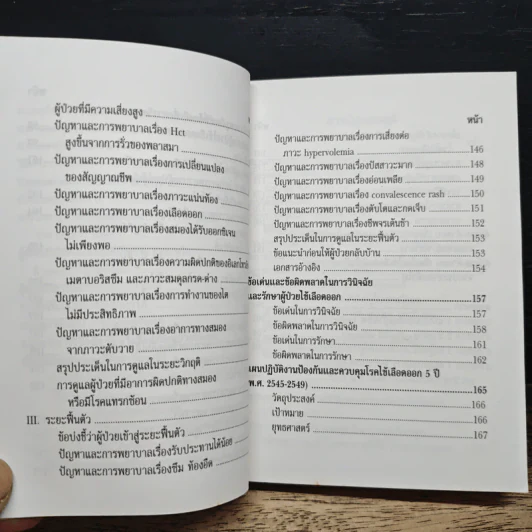 ผู้ป่วยที่มีความเสี่ยงสูง
ปัญหาและการพยาบาลเรื่อง Hct
สูงขึ้นจากการรั่วของพลาสมา
ปัญหาและการพยาบาลเรื่องการเปลี่ยนแปลง
ของสัญญาณชีพ
ปัญหาและการพยาบาลเรื่องภาวะแน่นท้อง
ปัญหาและการพยาบาลเรื่องเลือดออก
ปัญหาและการพยาบาลเรื่องสมองได้รับออกซิเจน
ไม่เพียงพอ
ปัญหาและการพยาบาลเรื่องความผิดปกติของอิเลกโทรลัยต์
เมตาบอริสซึม และภาวะสมดุลกรด-ด่าง
ปัญหาและการพยาบาลเรื่องการทำงานของไต
ไม่มีประสิทธิภาพ
ปัญหาและการพยาบาลเรื่องอาการทางสมอง
จากภาวะตับวาย
สรุปประเด็นในการดูแลในระยะวิกฤติ
การดูแลผู้ป่วยที่มีอาการผิดปกติทางสมอง
หรือมีโรคแทรกซ้อน
III. ระยะฟื้นตัว
ข้อบ่งชี้ว่าผู้ป่วยเข้าสู่ระยะฟื้นตัว
ปัญหาและการพยาบาลเรื่องรับประทานได้น้อย
ปัญหาและการพยาบาลเรื่องซึม ท้องอืด
หน้า
ปัญหาและการพยาบาลเรื่องการเสี่ยงต่อ
ภาวะ hypervolemia 146
ปัญหาและการพยาบาลเรื่องปัสสาวะมาก 148
ปัญหาและการพยาบาลเรื่องอ่อนเพลีย 149
ปัญหาและการพยาบาลเรื่อง convalescence rash 150
ปัญหาและการพยาบาลเรื่องตับโตและกดเจ็บ 151
ปัญหาและการพยาบาลเรื่องชีพจรเต้นช้า 152
สรุปประเด็นในการดูแลในระยะฟื้นตัว 153
ข้อแนะนำก่อนให้ผู้ป่วยกลับบ้าน 153
เอกสารอ้างอิง 154
ข้อเด่นและข้อผิดพลาดในการวินิจฉัย
และรักษาผู้ป่วยไข้เลือดออก 157
ข้อเด่นในการวินิจฉัย 157
ข้อผิดพลาดในการวินิจฉัย 158
ข้อเด่นในการรักษา 161
ข้อผิดพลาดในการรักษา 162
แผนปฏิบัติงานป้องกันและควบคุมโรคไข้เลือดออก 5 ปี
พ.ศ. 2545-2549) 165
วัตถุประสงค์ 166
เป้าหมาย 166
ยุทธศาสตร์ 167